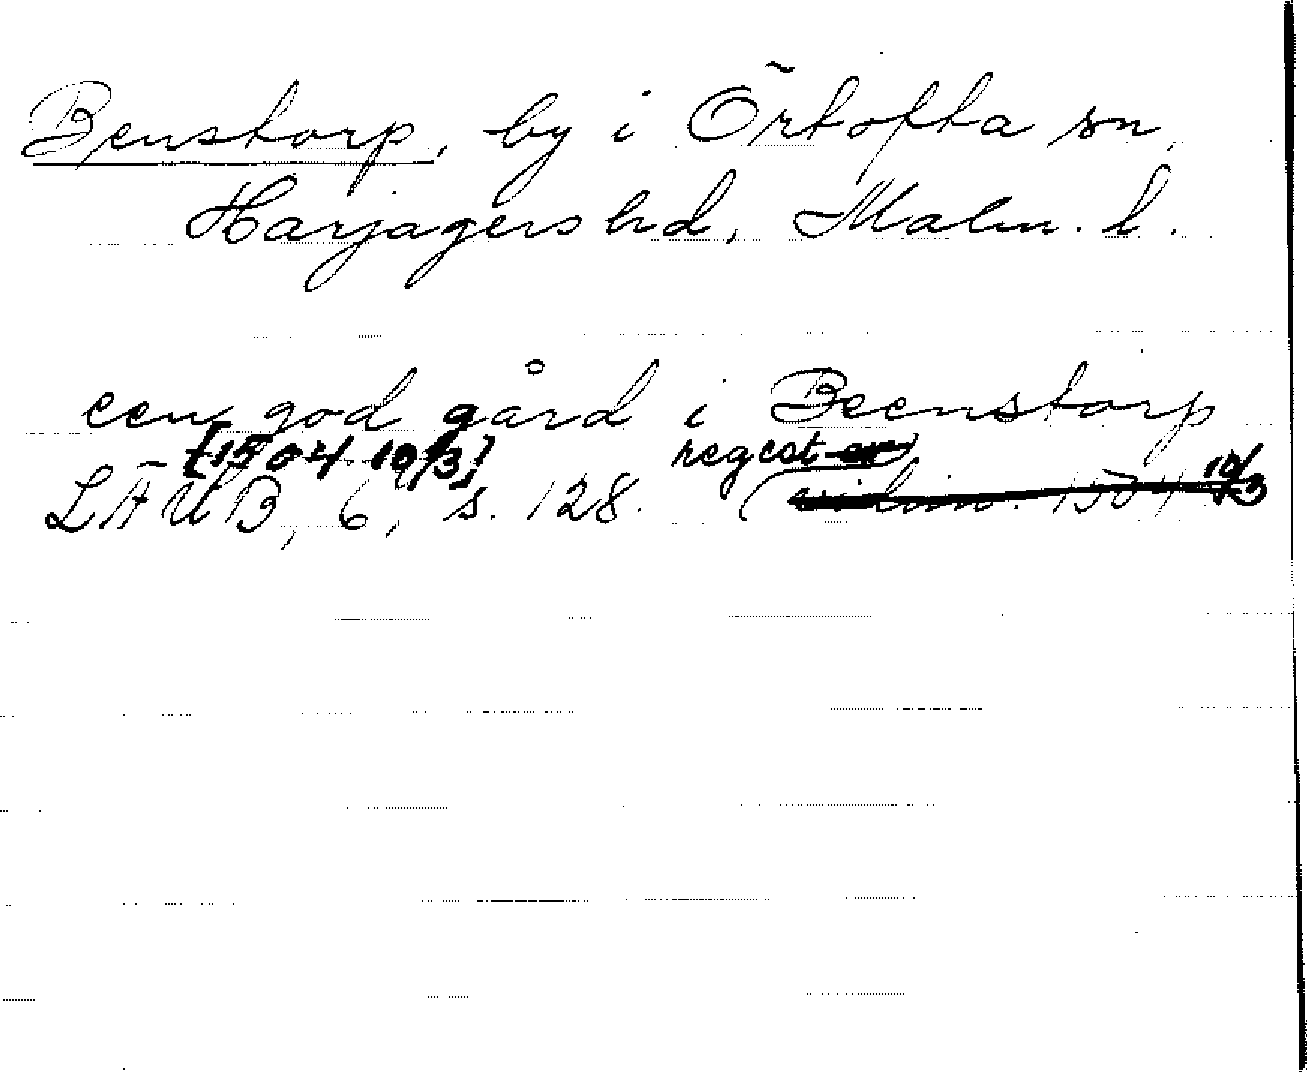 Benstorp, by i Örtofta sn,
Harjagers hd, Malm. l.
een god gård i Beenstorp
[1504 10/3] regest
LÄUB, 6, s. 128. ( 1504 10/3